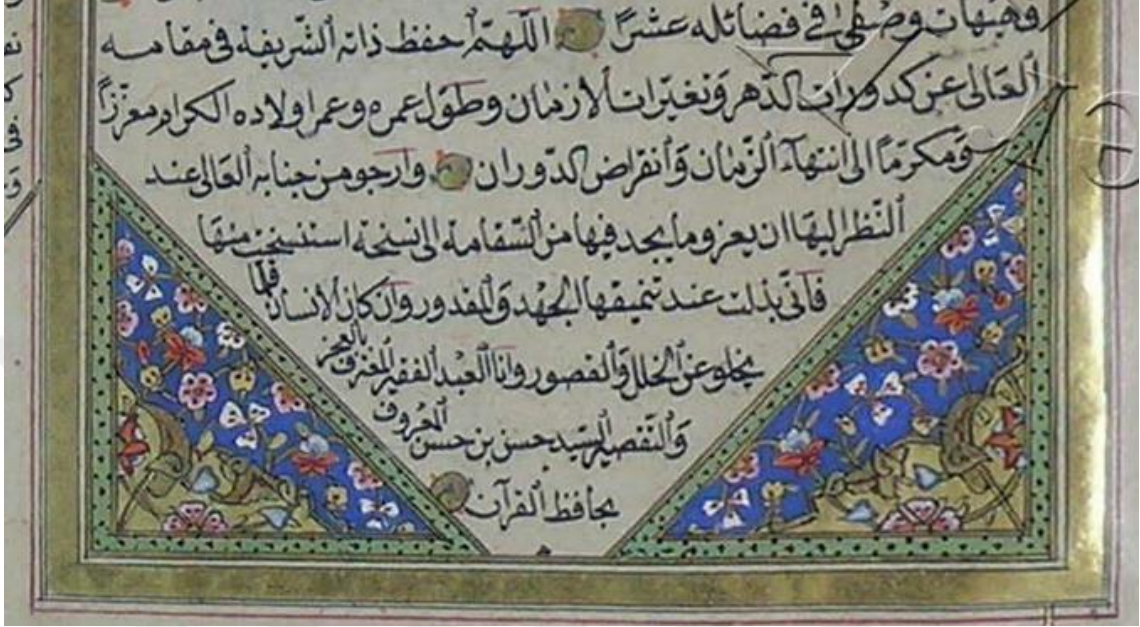 وهيهات وصفى في فضائله عشرًا اللهم احفظ ذاته الشريفة في مقامه
العالى عن كدورات الدهر وتغيرات الازمان وطول عمره وعمر اولاده الكرام معززًا
ومكرمًا الى انتهاء الزمان وانقراض الدوران وارجو من جنابه العالى عند
النظر اليها ان يعزو ما يجد فيها من السقامة الى نسخة استنسخت منها
فانى بذلت عند تنميقها الجهد والمقدور وان كان الانسان قلما
يخلو عن الخلل والقصور وانا العبد الفقير المعترف بالعجز
والتقصير السيد حسن بن حسن المعروف
بحافظ القرآن